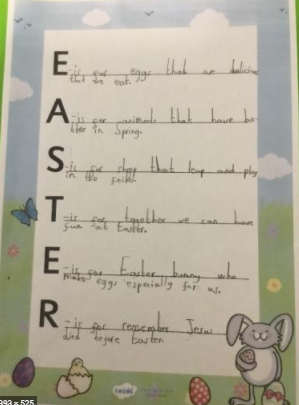 E -is for eggs that are delicious
that we eat.
A -is for animals that have ba-
bies in Spring.
S -is for sheep that leap and play
in the fields.
T -is for together we can have
fun at Easter.
E -is for Easter bunny who
makes eggs especially for us.
R -is for remember Jesus
died before Easter.
twinkl
993 x 525